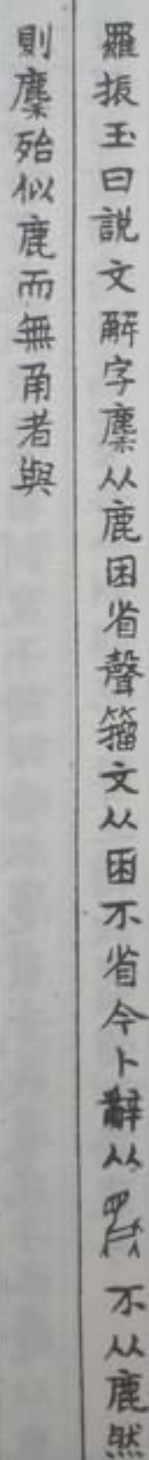 羅振玉曰說文解字麇从鹿囷省聲籀文从囷不省今卜辭从不从鹿然
則麇殆似鹿而無角者與